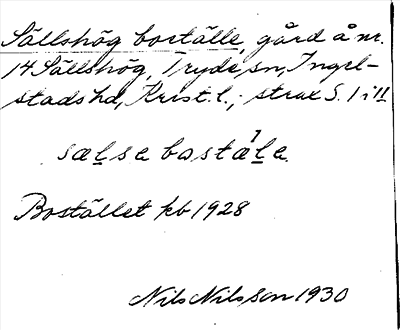 Sällshög boställe, gård å nr.
14 Sällshög, Tryde sn, Ingel-
stads hd, Krist. l.; strax S. 1 i 11.
sælse bostäle
Bostället kb 1928
Nils Nilsson 1930